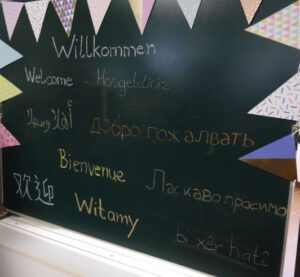 Willkommen
Welcome Hoşgeldiniz
أهلا وسهلا
добро пожалвать
Bienvenue
Ласкаво просимо
欢迎
Witamy
bi xêr hatî